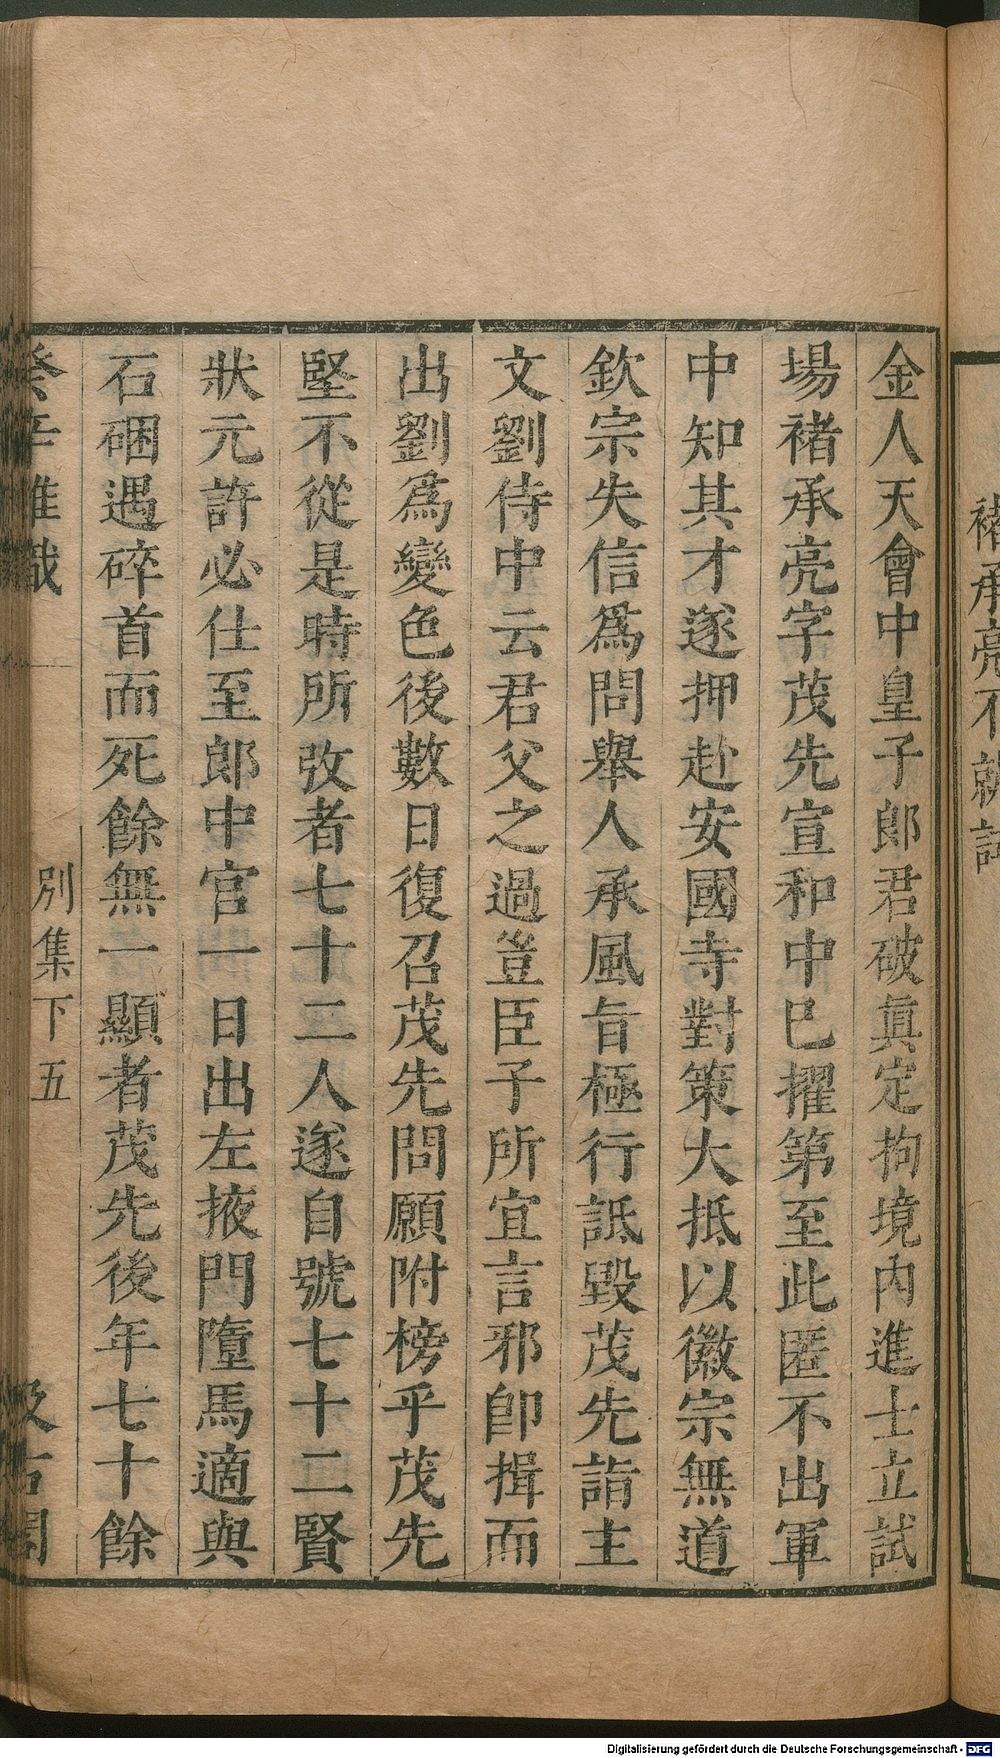 褚承亮不就試
金人天會中皇子郎君破眞定拘境內進士立試
場褚承亮字茂先宣和中已擢第至此匿不出軍
中知其才遂押赴安國寺對策大抵以徽宗無道
欽宗失信爲問舉人承風旨極行詆毀茂先詣主
文劉侍中云君父之過豈臣子所宜言邪卽揖而
出劉爲變色後數日復召茂先問願附榜乎茂先
堅不從是時所攷者七十二人遂自號七十二賢
狀元許必仕至郎中官一日出左掖門墮馬適與
石硱遇碎首而死餘無一顯者茂先後年七十餘
癸辛雜識
別集下
五
汲古閣
Digitalisierung gefördert durch die Deutsche Forschungsgemeinschaft - DFG